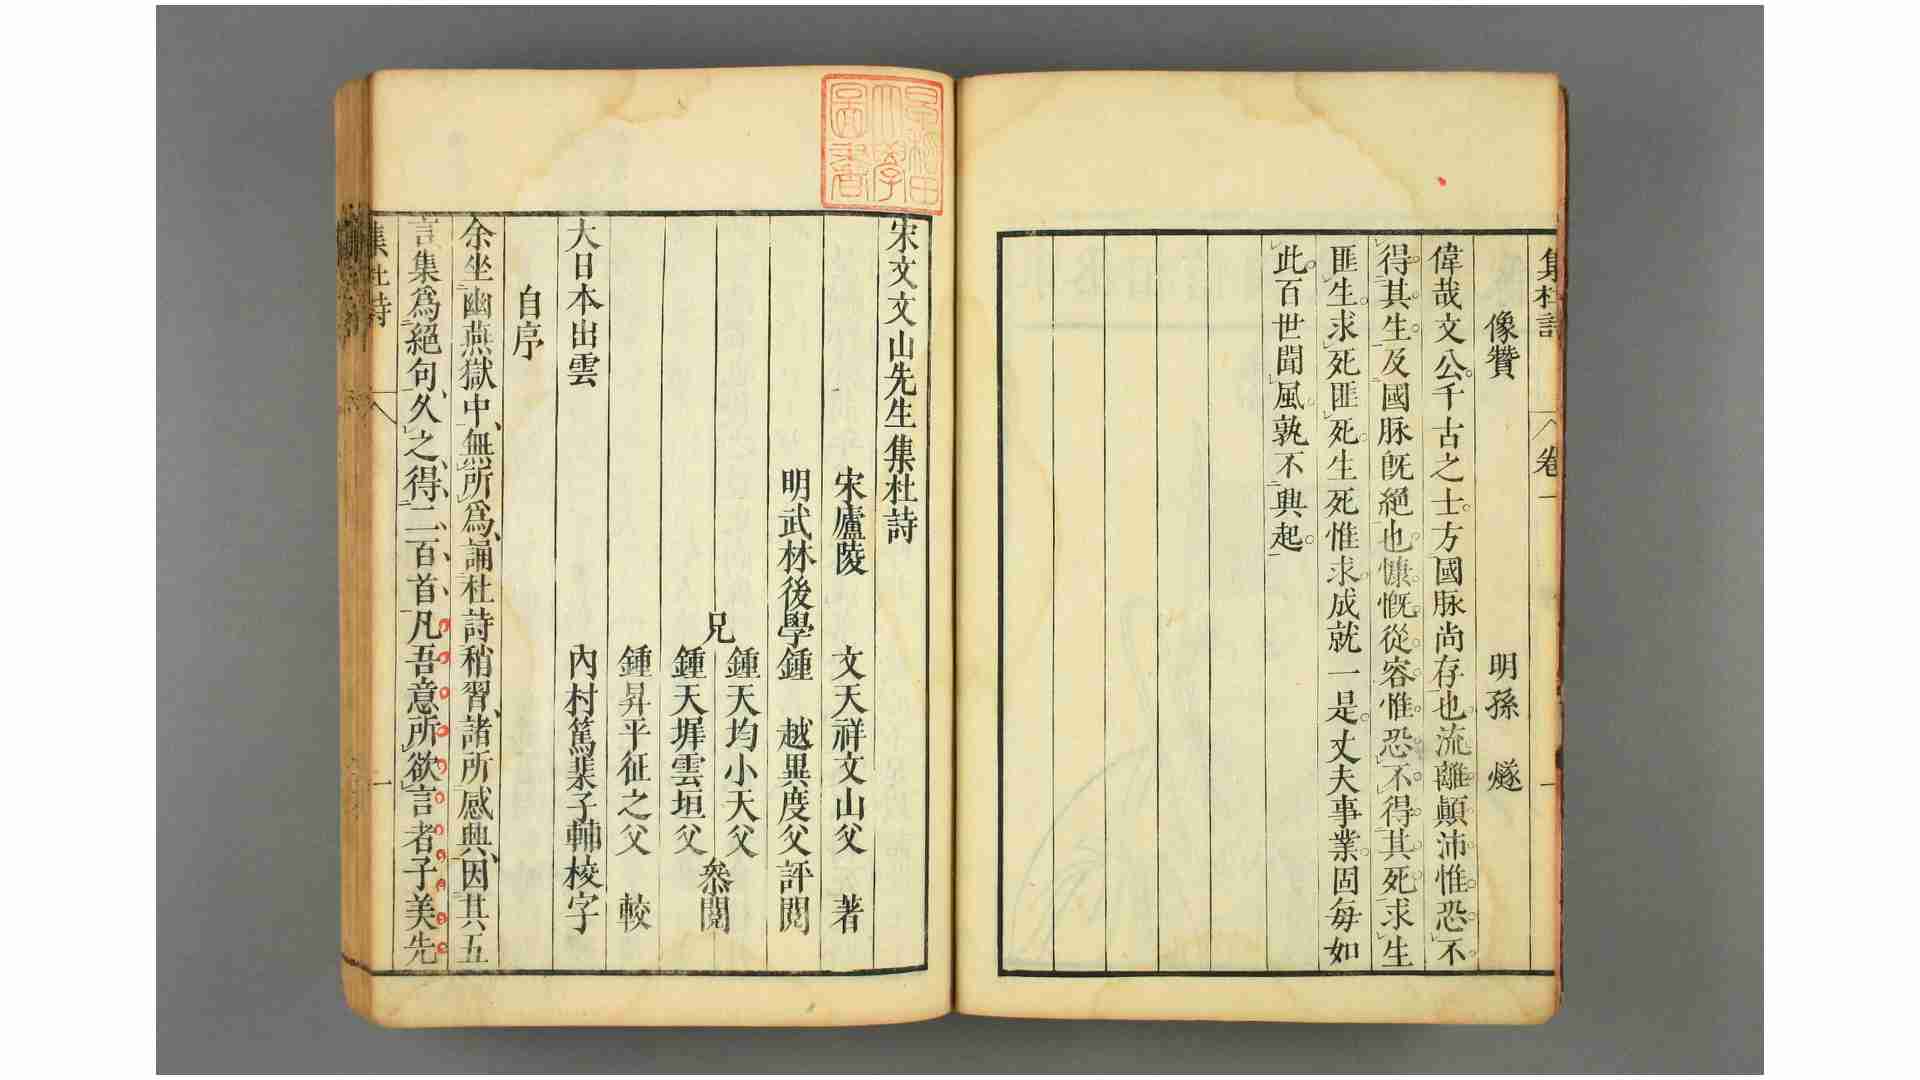 集杜詩 卷一
像贊 明孫 燧
偉哉文公千古之士方國脉尚存也流離顚沛惟恐不
得其生及國脉旣絕也慷慨從容惟恐不得其死求生
匪生求死匪死生死惟求成就一是丈夫事業固每如
此百世聞風孰不興起
早稻田大學圖書
宋文文山先生集杜詩
宋廬陵 文天祥文山父 著
明武林後學鍾 越異度父評閱
兄 鍾天均小天父
鍾天墀雲垣父 叅閱
鍾昇平征之父 較
大日本出雲 內村篤棐子輔校字
自序
余坐幽燕獄中無所爲誦杜詩稍習諸所感興因其五
言集爲絕句久之得二百首凡吾意所欲言者子美先
集杜詩 一